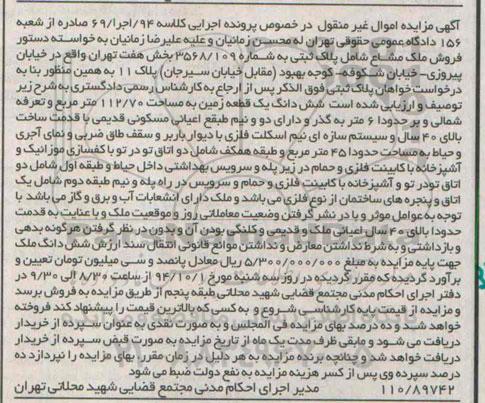 آگهی مزایده اموال غیر منقول در خصوص پرونده اجرایی کلاسه ۹۴/اجرا/۶۹ صادره از شعبه
۱۵۶ دادگاه عمومی حقوقی تهران له محسن زمانیان و علیه علیرضا زمانیان به خواسته دستور
فروش ملک مشاع شامل پلاک ثبتی به شماره ۳۵۶۸/۱۰۹ بخش هفت تهران واقع در خیابان
پیروزی- خیابان شکوفه- کوچه بهبود (مقابل خیابان سیرجان) پلاک ۱۱ به همین منظور بنا به
درخواست خواهان پلاک ثبتی فوق الذکر پس از ارجاع به کارشناس رسمی دادگستری به شرح زیر
توصیف و ارزیابی شده است شش دانگ یک قطعه زمین به مساحت ۱۱۲/۷۰ متر مربع و تعرفه
شمالی و بر حدودا ۶ متر به گذر و دارای دو و نیم طبقع اعیانی مسکونی قدیمی با قدمت ساخت
بالای ۴۰ سال و سیستم سازه ای نیم اسکلت فلزی با دیوار باربر و سقف طاق ضربی و نمای آجری
و حیاط به مساحت حدودا ۴۵ متر مربع و طبقه همکف شامل دو اتاق تو در تو با کفسازی موزائیک و
آشپزخانه با کابینت فلزی و حمام در زیر پله و سرویس بهداشتی داخل حیاط و طبقه اول شامل دو
اتاق تودر تو و آشپزخانه با کابینت فلزی و حمام و سرویس در راه پله و نیم طبقه دوم شامل یک
اتاق و پنجره های ساختمان از نوع فلزی می باشد و ملک دارای انشعابات آب و برق و گاز می باشد با
توجه به عوامل موثر و با در نشر گرفتن وضعیت معاملاتی روز و موقعیت ملک و با عنایت به قدمت
حدودا بالای ۴۰ سال اعیانی ملک و قدیمی و کلنگی بودن آن و بدون در نظر گرفتن هرگونه بدهی
و بازداشتی و به شرط نداشتن معارض و نداشتن موانع قانونی انتقال سند ارزش شش دانگ ملک
جهت پایه مزایده به مبلغ ۵/۳۰۰/۰۰۰/۰۰۰ ریال معادل پانصد و سی میلیون تومان تعیین و
برآورد گردیده که مقرر گردیده در روز سه شنبه مورخ ۹۴/۱۰/۱ از ساعت ۸/۳۰ الی ۹/۳۰ در
دفتر اجرای احکام مدنی مجتمع قضایی شهید محلاتی طبقه پنجم از طریق مزایده به فروش برسد
و مزایده از قیمت پایه کارشناسی شروع و به کسی که بالاترین قیمت را پیشنهاد کند فروخته
خواهد شد و ده درصد بهای مزایده فی المجلس و به صورت نقدی به عنوان سپرده از خریدار
دریافت می شود و مابقی ظرف مدت یک ماه از تاریخ مزایده به صورت قبض سپرده از خریدار
دریافت خواهد شد و چنانچه برنده مزایده به هر دلیل در زمان مقرر، بهای مزایده را نپردازد ده
درصد سپرده وی پس از کسر هزینه مزایده به نفع دولت ضبط می شود
۱۱۰/۸۹۷۴۲ مدیر اجرای احکام مدنی مجتمع قضایی شهید محلاتی تهران